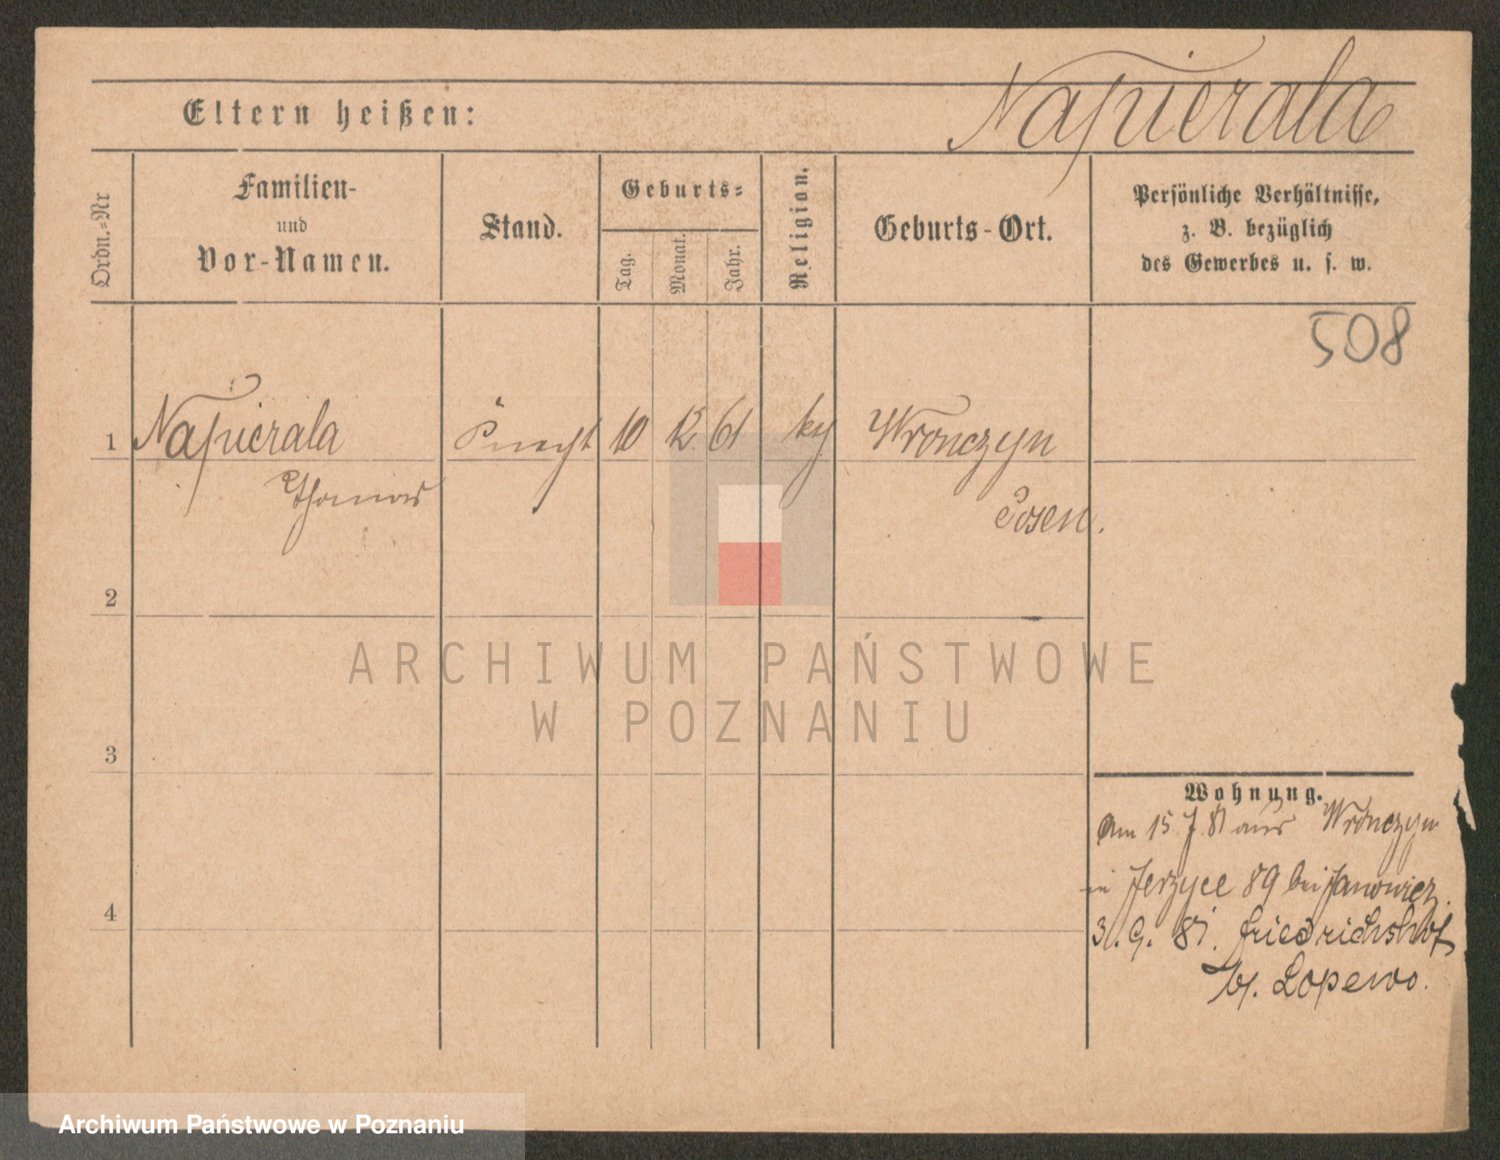 Napierala
Eltern heißen:
Ordn.=Nr
Familien-
und
Vor-Namen.
Stand.
Geburts=
Tag.
Monat.
Jahr.
Religion.
Geburts-Ort.
Persönliche Verhältnisse,
z. B. bezüglich
des Gewerbes u. s. w.
508
1 Napierala Knecht 10 12. 61 kg Wronczyn
Thomas Posen.
2
3
4
Wohnung.
Am 15 7. 81 aus Wronczyn
in Jerzyce 89 bei Janowicz.
3. 9. 81. Friedrichshof
b/. Lopewo.
ARCHIWUM PAŃSTWOWE
W POZNANIU
Archiwum Państwowe w Poznaniu